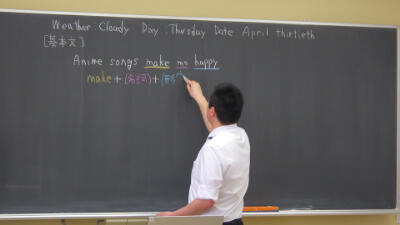 Weather. Cloudy Day. Thursday Date April thirtieth
[基本文]
Anime songs make me happy
make + (名詞) + (形